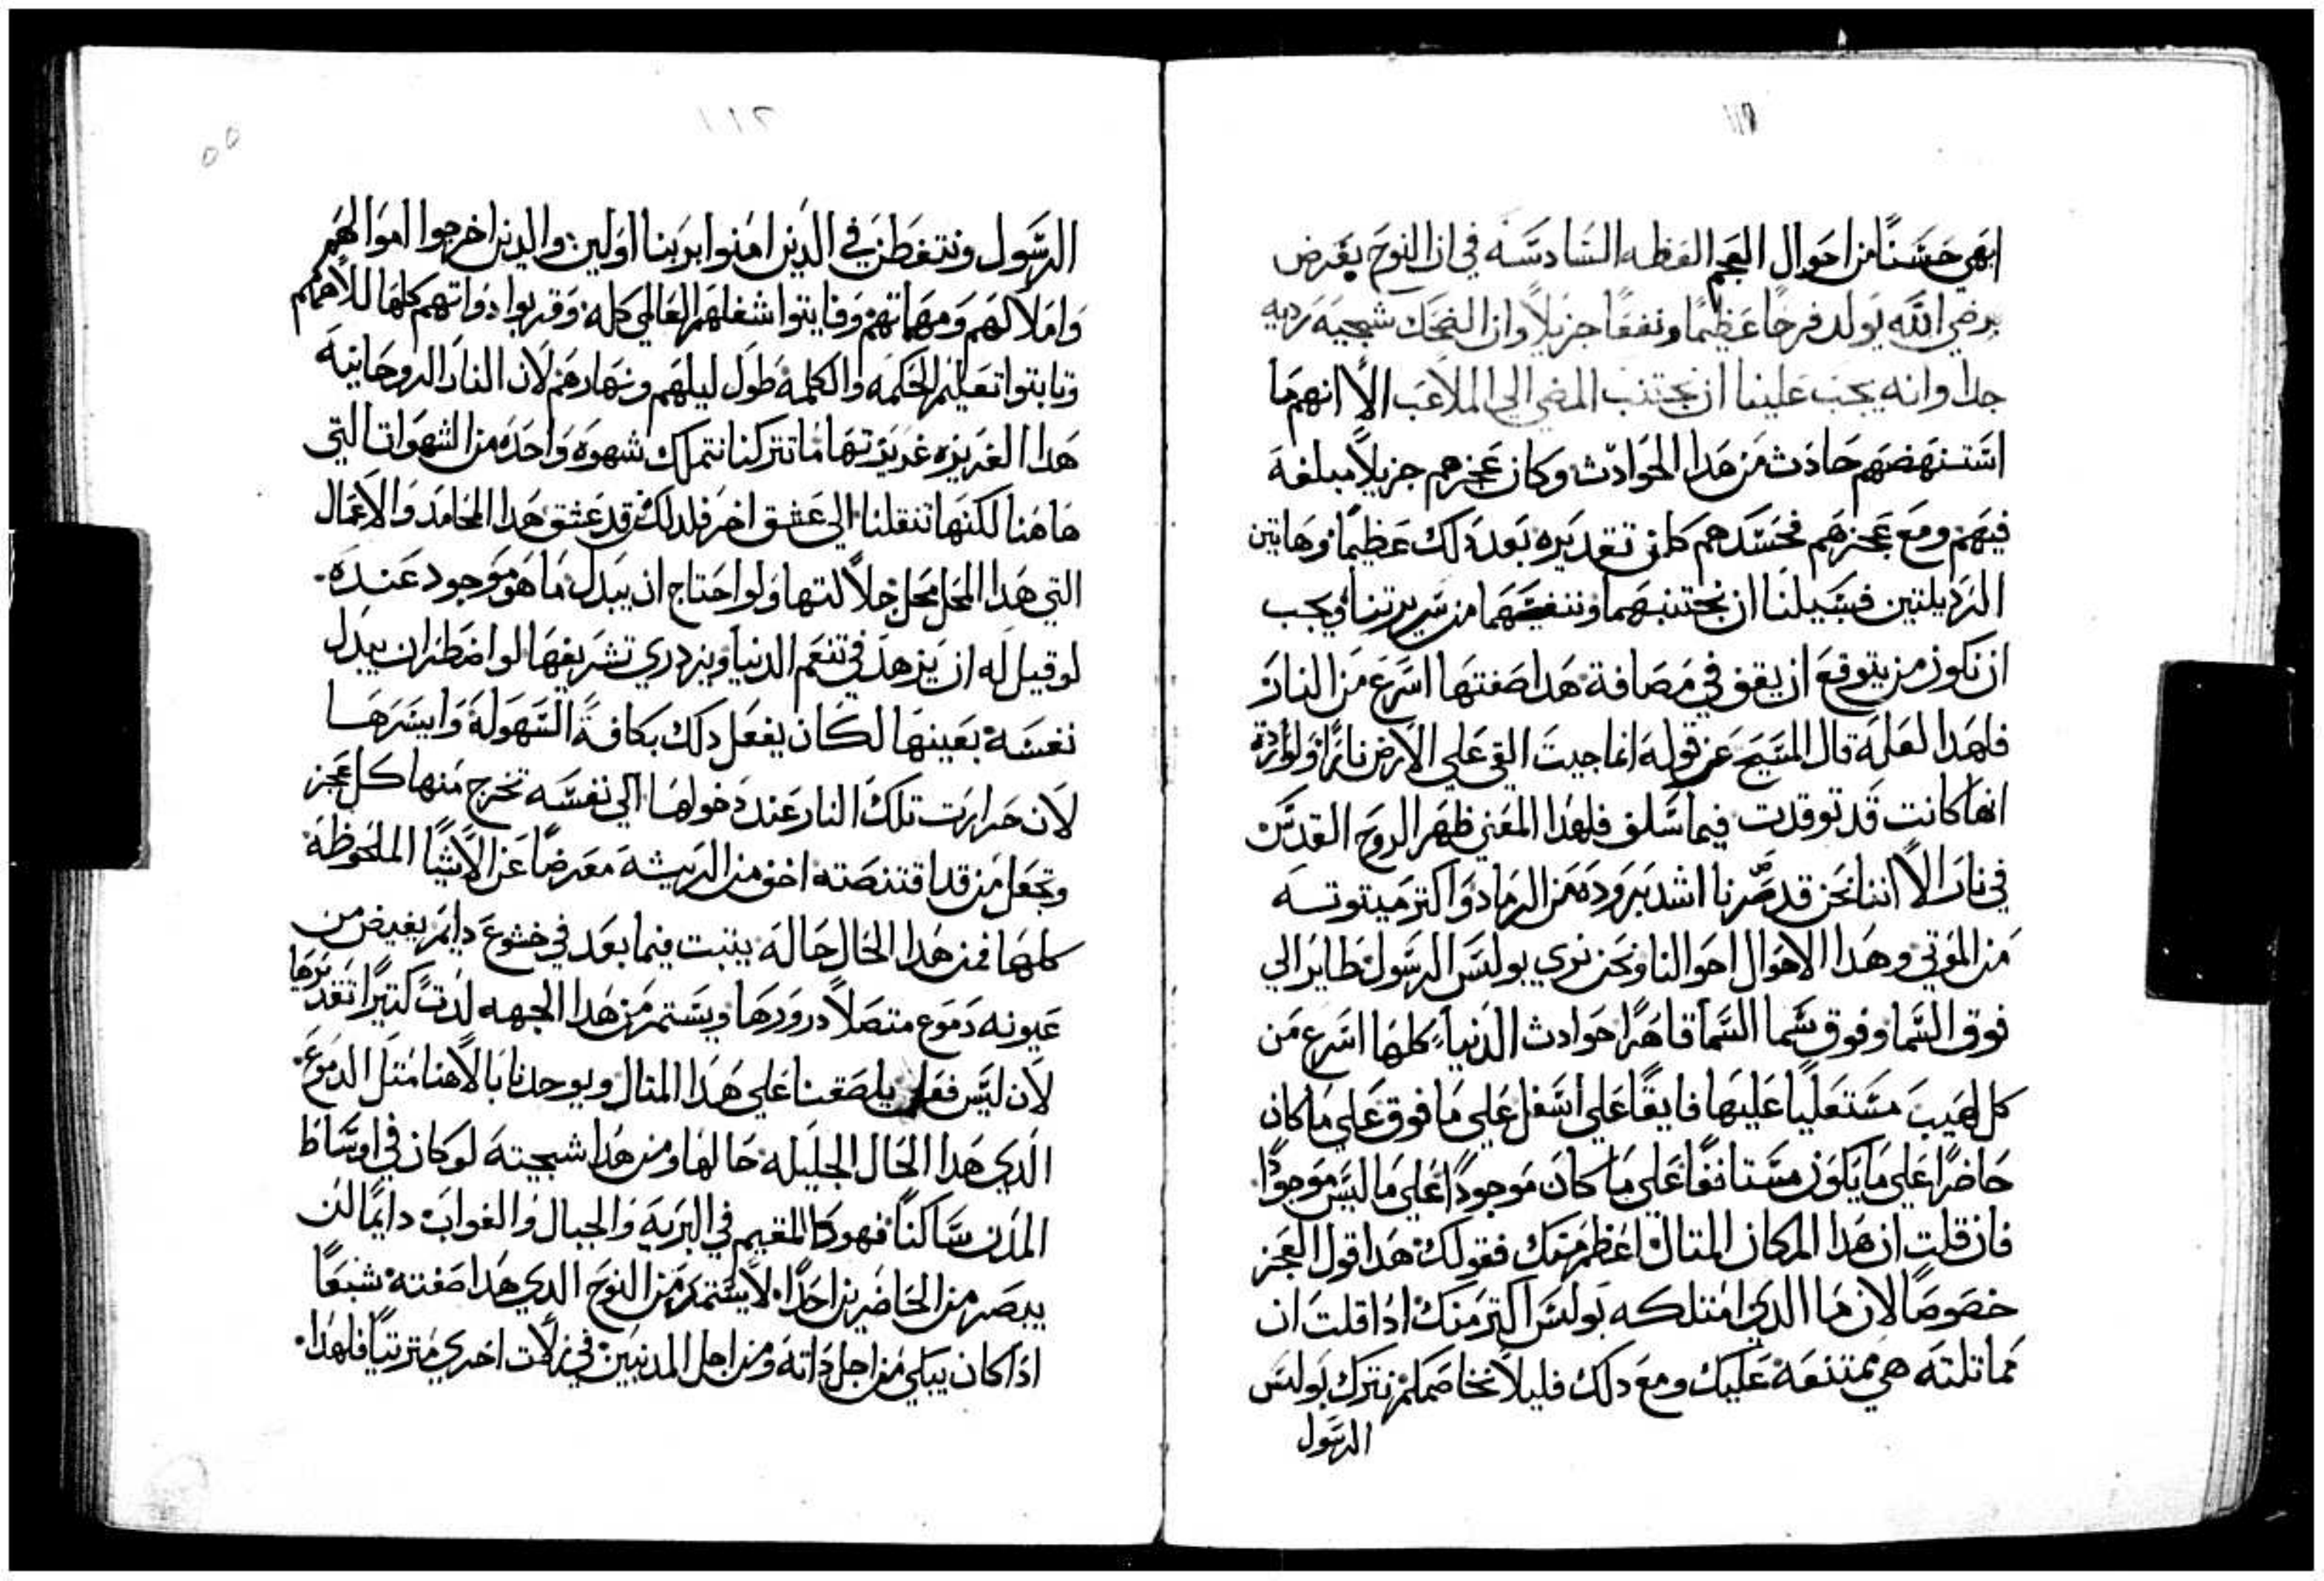 ١١١
ابهى حسنًا من احوال العجم العظه السادسه في ان النوح يعرض
يرضي الله يولد فرحًا عظيمًا ونفعًا جزيلاً وان الضحك شجيه رديه
جدا وانه يجب علينا ان نجتنب المضي الى الملاعب الا انهم ما
استنهضهم حادث من هدا الحوادث وكان عجزهم جزيلاً مبلغه
فيهم ومع عجزهم فحسدهم كان تقديره بعد دلك عظيمًا وهاتين
الرديلتين فسبيلنا ان نجتنبهما وننفضهما من سريرتنا ويجب
ان نكون من يتوقع ان يقف في مصافة هدا صفتها اسرع من النار
فلهدا العلة قال المسيح عز قوله انما جيت القي على الارض نارًا ولواردة
انها كانت قد توقدت فيما سلف فلهدا المعني ظهر الروح القدس
في نار الا اننا نحن قد صرنا اشد برودة من الرماد واكتر ميتوتة
من الموتى وهدا الاحوال احوالنا ونحن نرى بولس الرسول طاير الى
فوق السما وفوق سما السما قاهرًا حوادث الدنيا كلها اسرع من
كل لهيب مستعليًا عليها فايقًا على اسفل على ما فوق على ما كان
حاضرًا على ما يكون مستانفًا على ما كان موجودًا على ما ليس موجودًا
فان قلت ان هدا المركان المتال اعظم منك فقولك هدا قول العجز
خصوصًا لان ما الدي امتلكه بولس اكتر منك ادا قلت ان
مماتلته هي ممتنعة عليك ومع دلك فليلا نخاصمكم نترك بولس
الرسول
١١٢
٥٥
الرسول ونتفطن في الدين امنوا بربنا اولين والدين اخرجوا اموالهم
واملاكهم ومهماتهم وفايتوا شغلهم العالمي كله وقربوا دواتهم كلها للاههم
وتابتوا تعليم الحكمه والكلمة طول ليلهم ونهارهم لان النار الروحانية
هدا الغريزه غريزتها ما تتركنا نتملك شهوة واحده من الشهوات التي
هاهنا لكنها تنقلنا الى عشق اخر فلدلك من قد عشق هدا المحامد والاعمال
التي هدا المحل محل جلالتها ولو احتاج ان يبدل ما هو موجود عنده.
لو قيل له ان يزهد في تنعم الدنيا ويزدري تشريفها لو اضطر ان يبدل
نفسه بعينها لكان يفعل دلك بكافة السهولة وايسرها
لان حرارت تلك النار عند دخولها الى نفسه تخرج منها كل عجز
وتجعل من قد اقتنصته اخف من الريشة معرضًا عن الاشيا الملحوظة
كلها فمن هدا الحال حاله يتبت فيما بعد في خشوع دايم يفيض من
عيونه دموع متصلاً درورها ويستمر من هدا الجهه لدت كتيرًا تقديرها
لان ليس فعل يلصقنا على هدا المتال ويوحدنا بالاهنا متل الدموع.
الدي هدا الحال الجليله حالها ومن هدا شجيته لو كان في اوساط
المدن ساكنًا فهو كالمقيم في البرية والجبال والغواب دايمًا لن
يبصر من الحاضرين احدًا لا يستمد من النوح الدي هدا صفته شبعًا
ادا كان يبكي من اجل داته ومن اجل المدنبين في زلات اخري مترتيًا فلهدا.